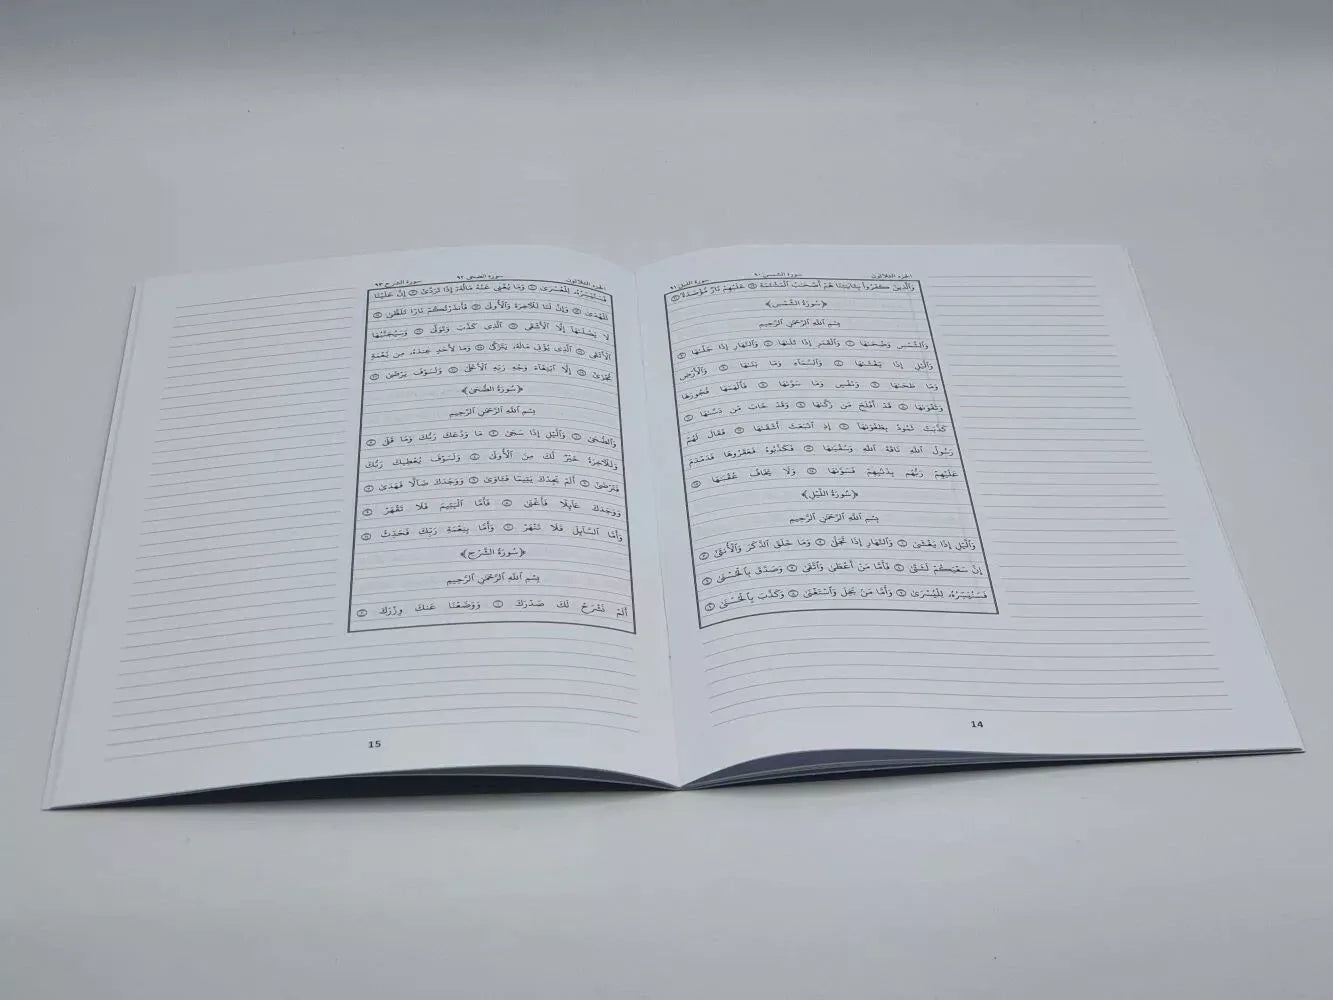 الجزء الثلاثون
سورة الشمس ٩٠
سورة الليل ٩١
وَٱلَّذِينَ كَفَرُوا۟ بِـَٔايَٰتِنَا هُمْ أَصْحَٰبُ ٱلْمَشْـَٔمَةِ ۝ عَلَيْهِمْ نَارٌ مُّؤْصَدَةٌ ۝
﴿سُورَةُ الشَّمْسِ﴾
بِسْمِ ٱللَّهِ ٱلرَّحْمَٰنِ ٱلرَّحِيمِ
وَٱلشَّمْسِ وَضُحَىٰهَا ۝ وَٱلْقَمَرِ إِذَا تَلَىٰهَا ۝ وَٱلنَّهَارِ إِذَا جَلَّىٰهَا ۝
وَٱلَّيْلِ إِذَا يَغْشَىٰهَا ۝ وَٱلسَّمَآءِ وَمَا بَنَىٰهَا ۝ وَٱلْأَرْضِ
وَمَا طَحَىٰهَا ۝ وَنَفْسٍ وَمَا سَوَّىٰهَا ۝ فَأَلْهَمَهَا فُجُورَهَا
وَتَقْوَىٰهَا ۝ قَدْ أَفْلَحَ مَن زَكَّىٰهَا ۝ وَقَدْ خَابَ مَن دَسَّىٰهَا ۝
كَذَّبَتْ ثَمُودُ بِطَغْوَىٰهَآ ۝ إِذِ ٱنۢبَعَثَ أَشْقَىٰهَا ۝ فَقَالَ لَهُمْ
رَسُولُ ٱللَّهِ نَاقَةَ ٱللَّهِ وَسُقْيَٰهَا ۝ فَكَذَّبُوهُ فَعَقَرُوهَا فَدَمْدَمَ
عَلَيْهِمْ رَبُّهُم بِذَنۢبِهِمْ فَسَوَّىٰهَا ۝ وَلَا يَخَافُ عُقْبَٰهَا ۝
﴿سُورَةُ اللَّيْلِ﴾
بِسْمِ ٱللَّهِ ٱلرَّحْمَٰنِ ٱلرَّحِيمِ
وَٱلَّيْلِ إِذَا يَغْشَىٰ ۝ وَٱلنَّهَارِ إِذَا تَجَلَّىٰ ۝ وَمَا خَلَقَ ٱلذَّكَرَ وَٱلْأُنثَىٰٓ ۝
إِنَّ سَعْيَكُمْ لَشَتَّىٰ ۝ فَأَمَّا مَنْ أَعْطَىٰ وَٱتَّقَىٰ ۝ وَصَدَّقَ بِٱلْحُسْنَىٰ ۝
فَسَنُيَسِّرُهُۥ لِلْيُسْرَىٰ ۝ وَأَمَّا مَنۢ بَخِلَ وَٱسْتَغْنَىٰ ۝ وَكَذَّبَ بِٱلْحُسْنَىٰ ۝
14
الجزء الثلاثون
سورة الضحى ٩٢
سورة الشرح ٩٣
فَسَنُيَسِّرُهُۥ لِلْعُسْرَىٰ ۝ وَمَا يُغْنِى عَنْهُ مَالُهُۥٓ إِذَا تَرَدَّىٰٓ ۝ إِنَّ عَلَيْنَا
لَلْهُدَىٰ ۝ وَإِنَّ لَنَا لَلْـَٔاخِرَةَ وَٱلْأُولَىٰ ۝ فَأَنذَرْتُكُمْ نَارًا تَلَظَّىٰ ۝
لَا يَصْلَىٰهَآ إِلَّا ٱلْأَشْقَى ۝ ٱلَّذِى كَذَّبَ وَتَوَلَّىٰ ۝ وَسَيُجَنَّبُهَا
ٱلْأَتْقَى ۝ ٱلَّذِى يُؤْتِى مَالَهُۥ يَتَزَكَّىٰ ۝ وَمَا لِأَحَدٍ عِندَهُۥ مِن نِّعْمَةٍ
تُجْزَىٰٓ ۝ إِلَّا ٱبْتِغَآءَ وَجْهِ رَبِّهِ ٱلْأَعْلَىٰ ۝ وَلَسَوْفَ يَرْضَىٰ ۝
﴿سُورَةُ الضُّحَى﴾
بِسْمِ ٱللَّهِ ٱلرَّحْمَٰنِ ٱلرَّحِيمِ
وَٱلضُّحَىٰ ۝ وَٱلَّيْلِ إِذَا سَجَىٰ ۝ مَا وَدَّعَكَ رَبُّكَ وَمَا قَلَىٰ ۝
وَلَلْـَٔاخِرَةُ خَيْرٌ لَّكَ مِنَ ٱلْأُولَىٰ ۝ وَلَسَوْفَ يُعْطِيكَ رَبُّكَ
فَتَرْضَىٰٓ ۝ أَلَمْ يَجِدْكَ يَتِيمًا فَـَٔاوَىٰ ۝ وَوَجَدَكَ ضَآلًّا فَهَدَىٰ ۝
وَوَجَدَكَ عَآئِلًا فَأَغْنَىٰ ۝ فَأَمَّا ٱلْيَتِيمَ فَلَا تَقْهَرْ ۝
وَأَمَّا ٱلسَّآئِلَ فَلَا تَنْهَرْ ۝ وَأَمَّا بِنِعْمَةِ رَبِّكَ فَحَدِّثْ ۝
﴿سُورَةُ الشَّرْحِ﴾
بِسْمِ ٱللَّهِ ٱلرَّحْمَٰنِ ٱلرَّحِيمِ
أَلَمْ نَشْرَحْ لَكَ صَدْرَكَ ۝ وَوَضَعْنَا عَنكَ وِزْرَكَ ۝
15